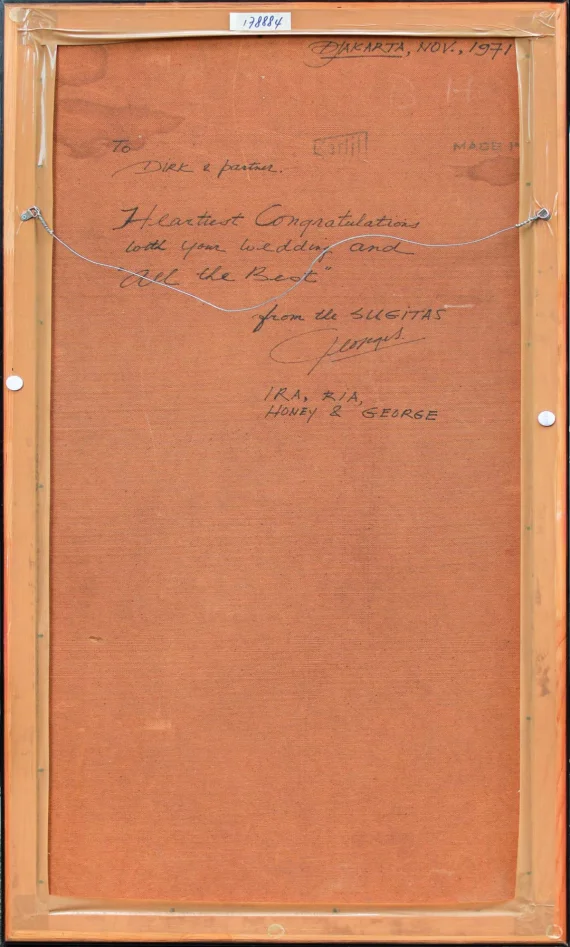 178884
DJAKARTA, NOV., 1971
To
DIRK & partner.
MADE I
Heartiest Congratulations
with your wedding and
"All the Best"
from the SUGITAS
IRA, RIA,
HONEY & GEORGE